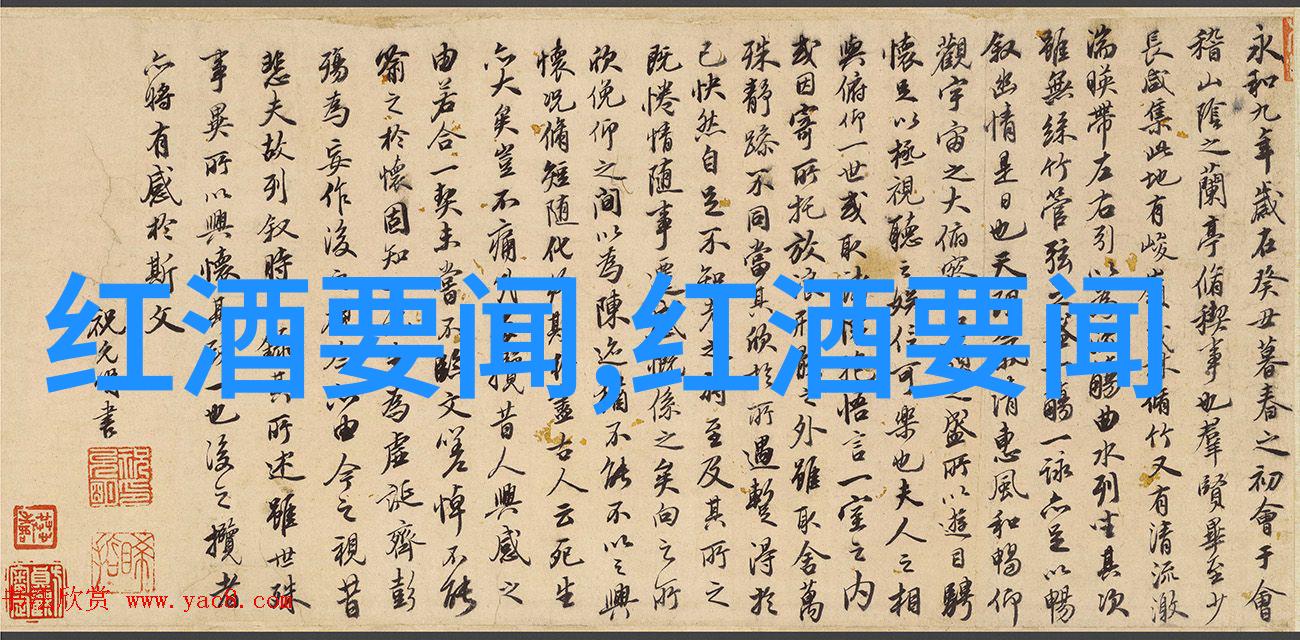 永和九年歲在癸丑暮春之初會于會
稽山陰之蘭亭脩稧事也羣賢畢至少
長咸集此地有峻嶺茂林脩竹又有清流激
湍暎帶左右引以為流觴曲水列坐其次
雖無絲竹管弦之盛一觴一詠亦足以暢
敘幽情是日也天朗氣清惠風和暢仰
觀宇宙之大俯察品類之盛所以遊目騁
懷足以極視聽之娛信可樂也夫人之相
與俯仰一世或取諸懷抱悟言一室之內
或因寄所托放浪形骸之外雖取舍萬
殊靜躁不同當其欣於所遇暫得於
己快然自足不知老之將至及其所之
既惓情随事遷感慨係之矣向之所
欣俛仰之間以為陳迹猶不能不以之興
懷況脩短随化終期於盡古人云死生
亦大矣豈不痛哉每攬昔人興感之
由若合一契未嘗不臨文嗟悼不能
喻之於懷固知一死生為虛誕齊彭
殤為妄作後之視今亦由今之視昔
悲夫故列敘時人錄其所述雖世殊
事異所以興懷其致一也後之攬者
亦將有感於斯文
祝允明書
红酒要闻,红酒要闻
欣赏 www.yac8.com